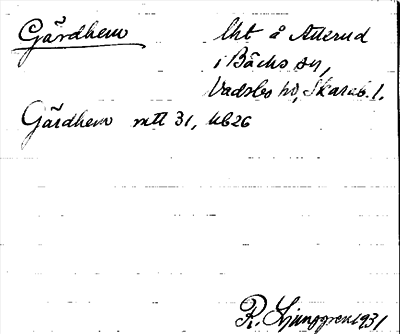 Gårdhem lht å Atterud
i Bäcks sn,
Vadsbo hd, Skarab. l.
Gårdhem mtl 31, Ub26
R. Ljunggren 1931